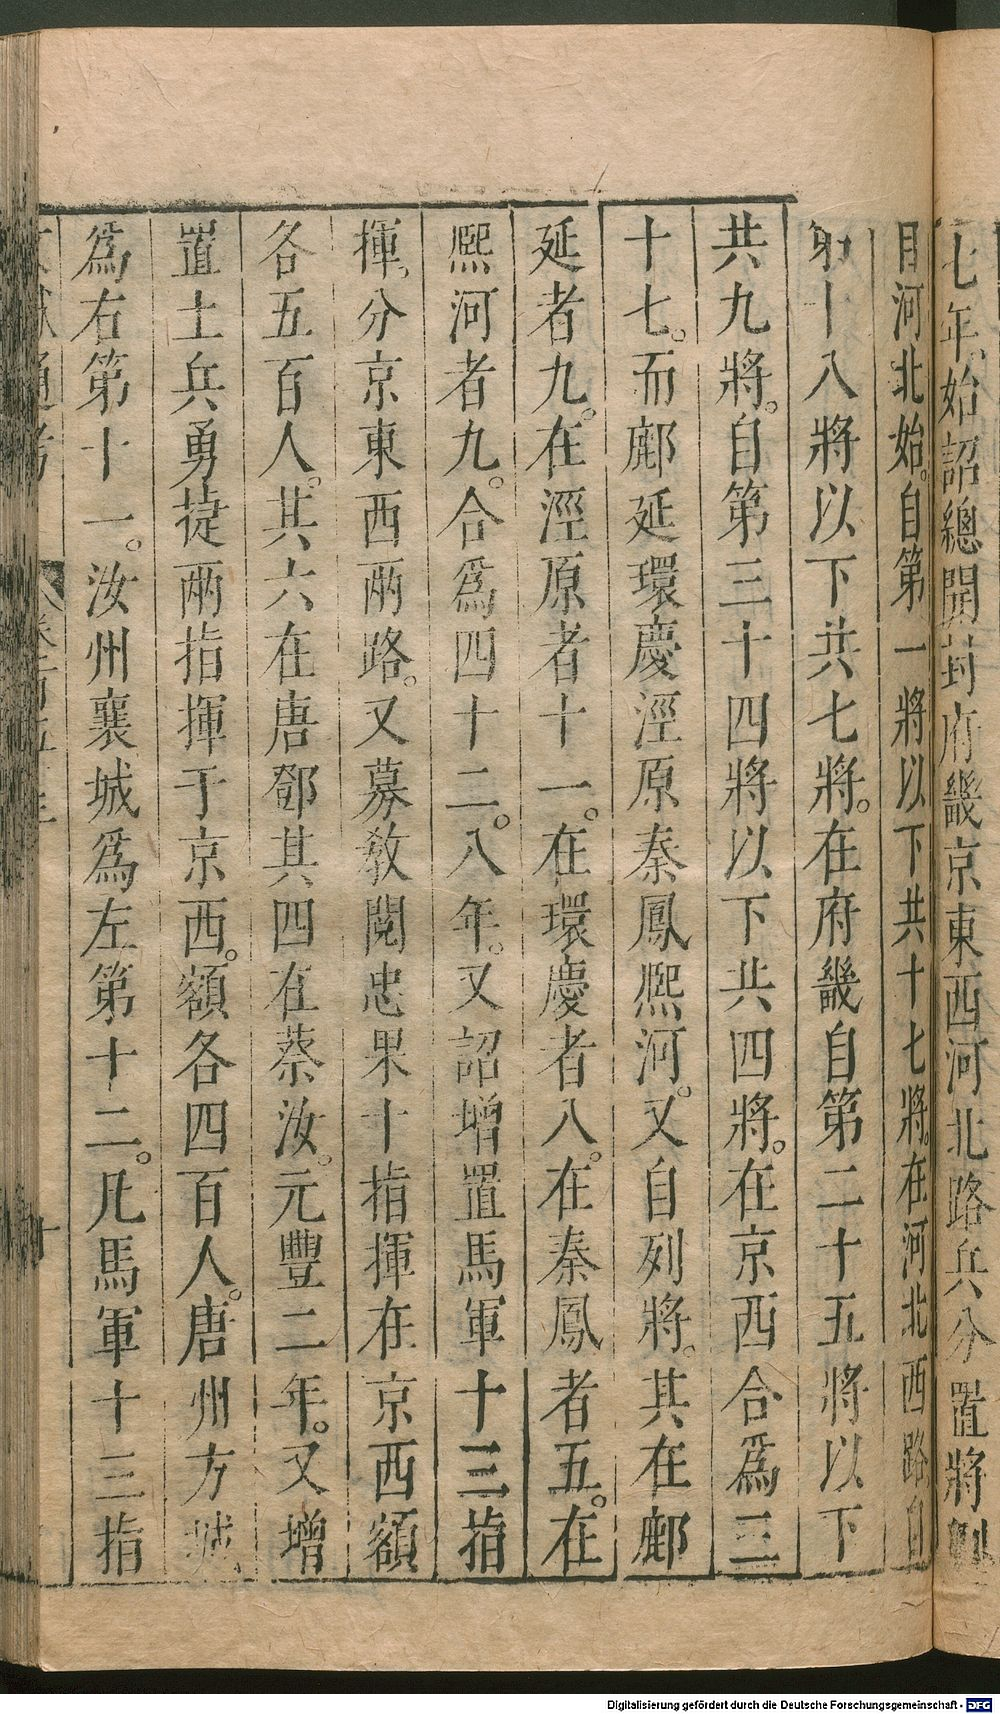 七年始詔總開封府畿京東西河北路兵分置將副
自河北始。自第一將以下共十七將。在河北西路自
第十八將以下共七將。在府畿自第二十五將以下
共九將。自第三十四將以下共四將。在京西合爲三
十七。而鄜延環慶涇原秦鳳熈河。又自列將。其在鄜
延者九。在涇原者十一。在環慶者八。在秦鳳者五。在
熈河者九。合爲四十二。八年。又詔增置馬軍十三指
揮。分京東西兩路。又募敎閱忠果十指揮在京西額
各五百人。其六在唐鄧其四在蔡汝。元豐二年。又增
置土兵勇㨗兩指揮于京西。額各四百人。唐州方城
爲右第十一。汝州襄城爲左第十二。凡馬軍十三指
文獻通考 卷一百五十三 十
Digitalisierung gefördert durch die Deutsche Forschungsgemeinschaft - DFG